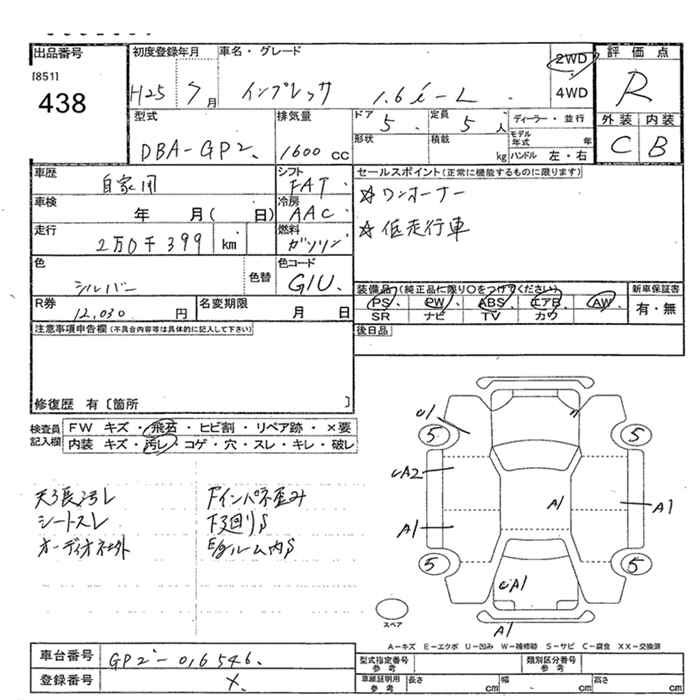 出品番号
[851]
438
初度登録年月
H25 7月
車名・グレード
インプレッサ 1.6i-L
2WD
4WD
評価点
R
外装 内装
C B
型式
DBA-GP2
排気量
1600 cc
ドア
5
定員
5人
形状
積載
kg
ディーラー・並行
モデル年式 年
ハンドル 左・右
車歴
自家用
シフト
FAT
車検
年 月( 日)
冷房
AAC
走行
2万0千399 km
燃料
ガソリン
色
シルバー
色替
色コード
G1U
R券
12,030 円
名変期限
月 日
セールスポイント(正常に機能するものに限ります)
☆ワンオーナー
☆低走行車
装備品(純正品に限り○をつけてください)
PS PW ABS エアB AW
SR ナビ TV カワ
新車保証書
有・無
後日品
注意事項申告欄(不具合内容等は具体的に記入して下さい)
修復歴 有〔箇所 〕
検査員
記入欄
FW キズ・飛石・ヒビ割・リペア跡・×要
内装 キズ・汚レ・コゲ・穴・スレ・キレ・破レ
天張汚レ
シートスレ
オーディオ社外
Fインパネ歪み
下回りS
Egルーム内S
U1
5
5
A2
A1
A1
A1
5
5
A1
A1
スペア
A-キズ E-エクボ U-凹み W-補修跡 S-サビ C-腐食 XX-交換済
車台番号
GP2-016546
登録番号
×
型式指定番号
参考
類別区分番号
参考
車庫証明用
参考
長さ cm
幅 cm
高さ cm